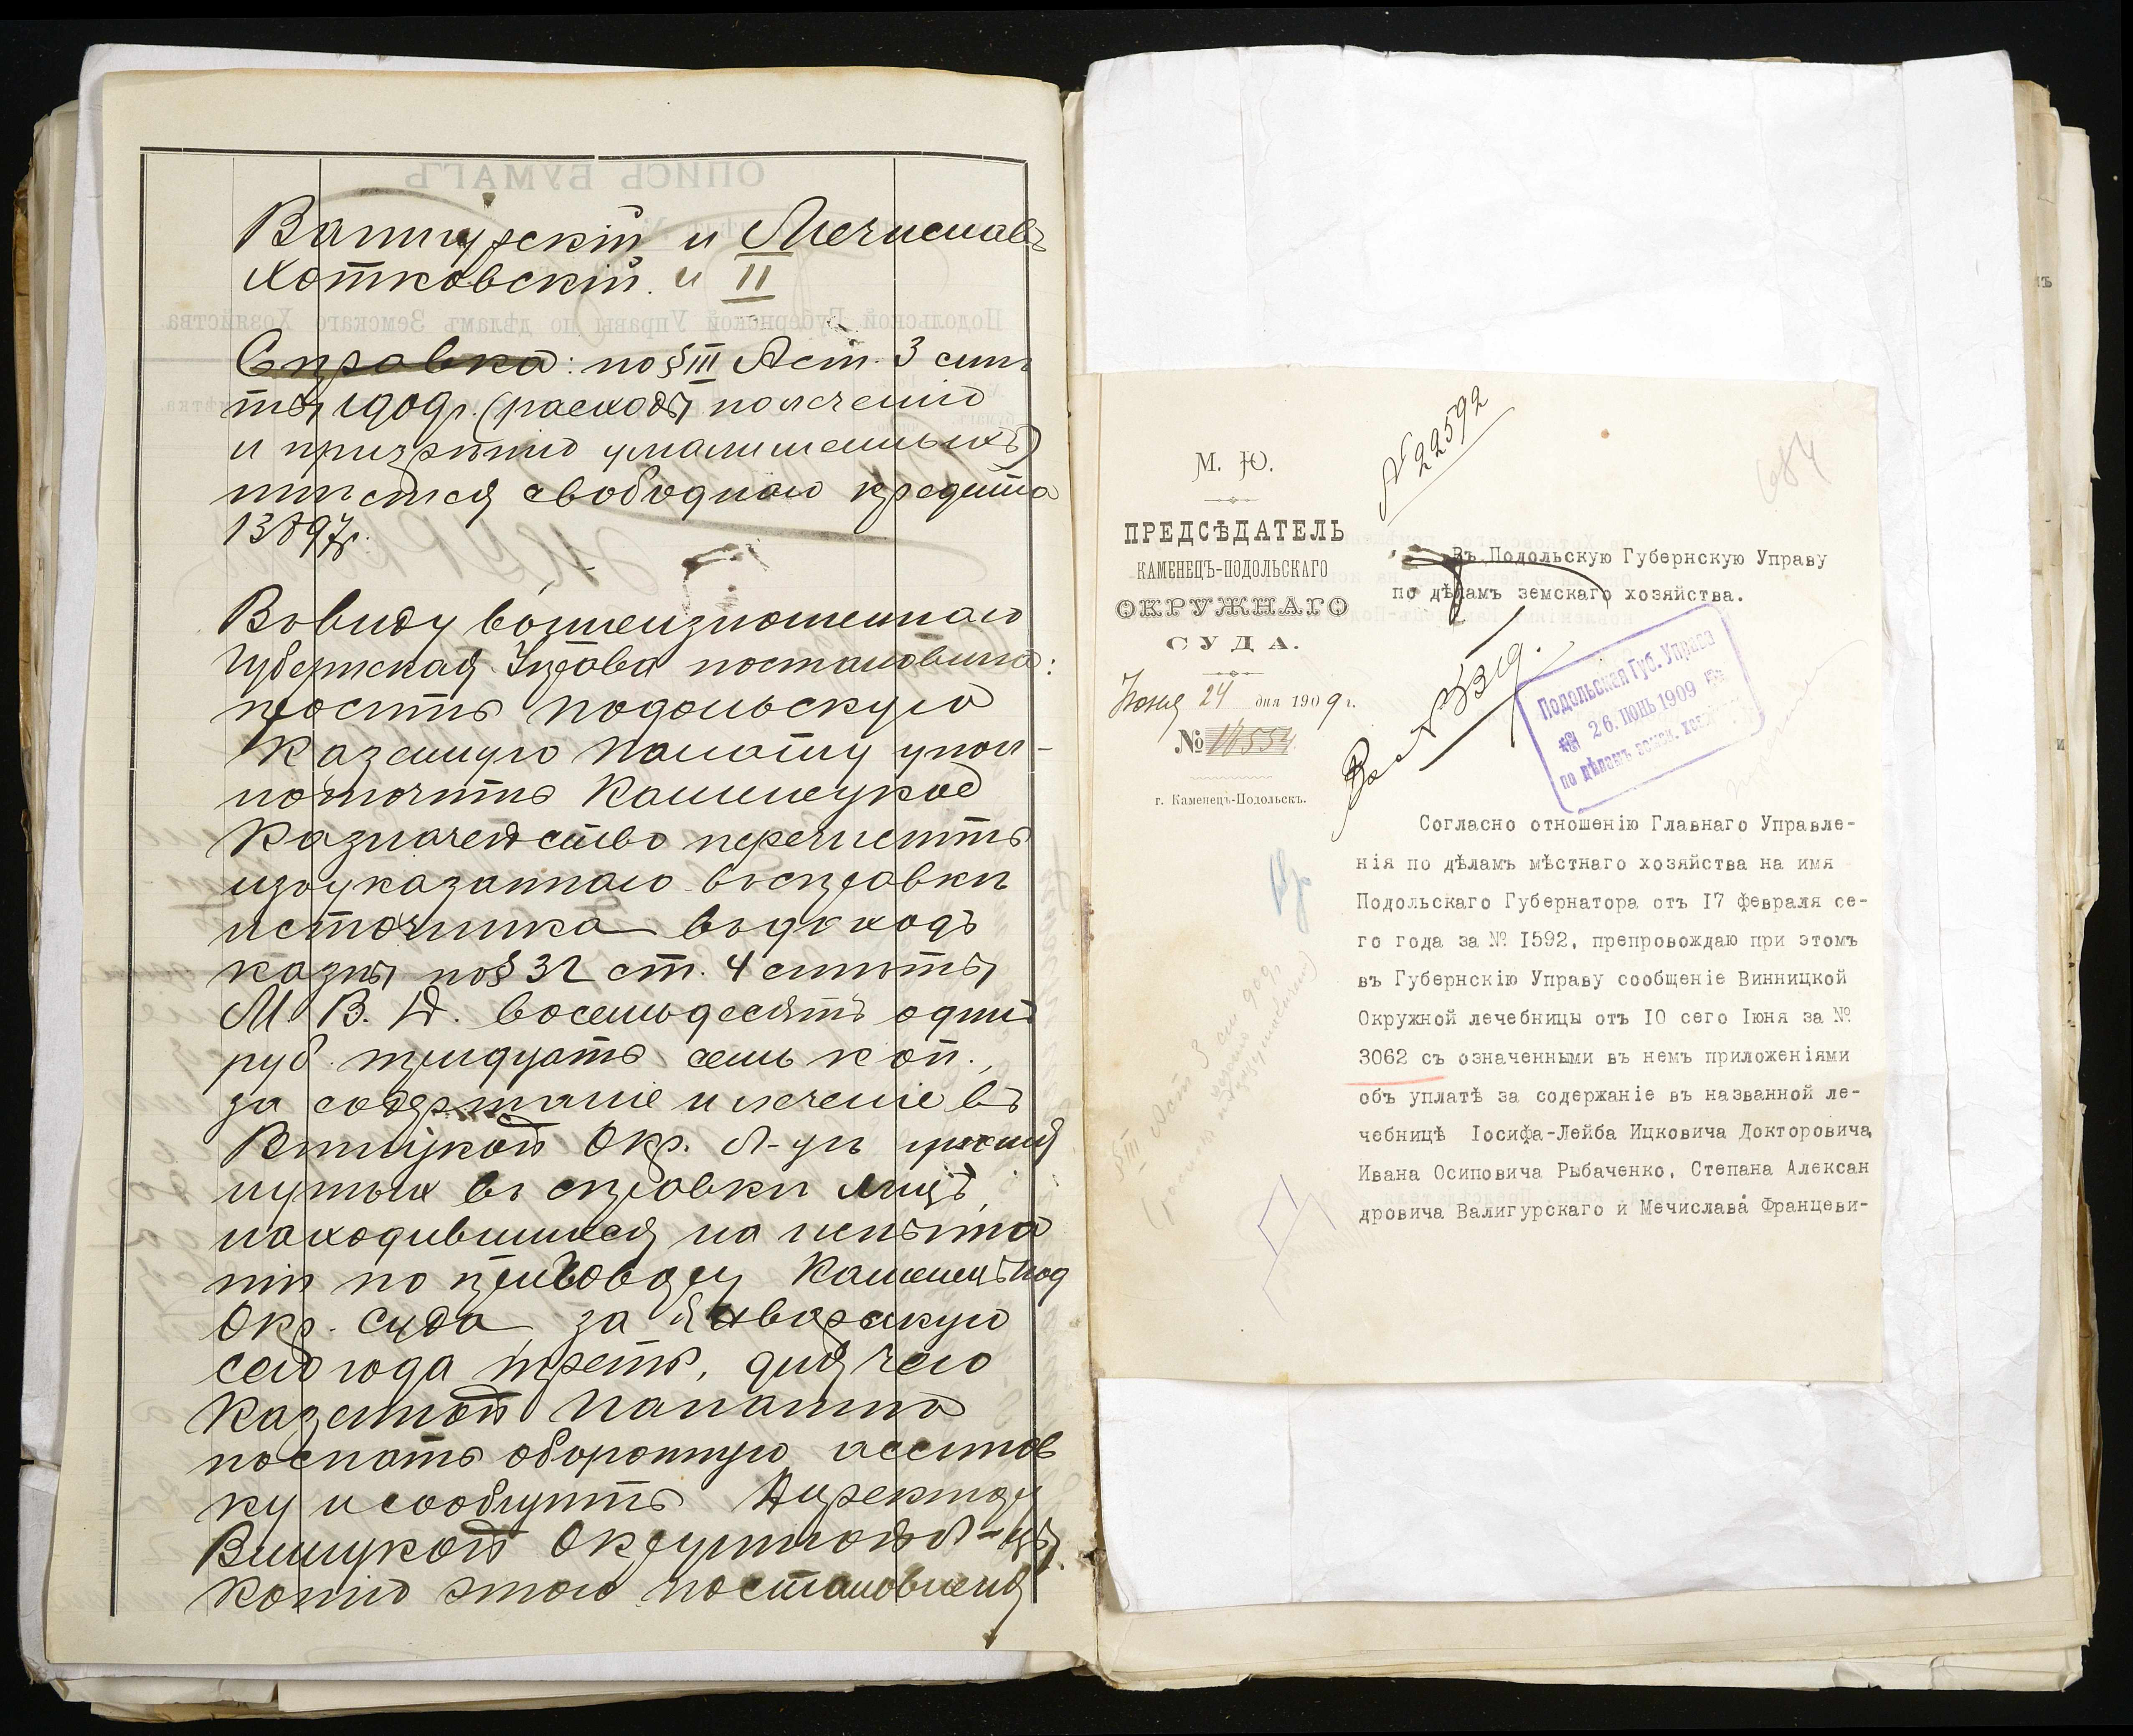 Валигурскій и Мечиславъ
Хотковскій. и II
Справка: по § III Лст. 3 смѣ
ты 1909 г. (расходы по леченію
и призрѣнію умалишенныхъ)
имѣется свободнаго кредита
13897 р.
Въ виду вышеизложеннаго
Губернская Управа постановила:
просить Подольскую
Казенную Палату упол-
номочить Каменецкое
Казначейство перечислить
изъ указаннаго въ справкѣ
источника въ доходъ
казны по § 32 ст. 4 смѣты
М. В. Д. восемьдесятъ одинъ
руб. тридцать семь коп.,
за содержаніе и леченіе въ
Винницкой Окр. Л-цѣ
нутыхъ въ справкѣ лицъ,
находившихся на испыта
ніи по приговору Каменецъ Под
Окр. Суда за Январскую
сего года треть, для чего
Казенной Палатѣ
послать оборотную ассигнов
ку и сообщить Директору
Винницкой Окружной Л-цы
копію этого постановленія
М. Ю.
ПРЕДСѢДАТЕЛЬ
КАМЕНЕЦЪ-ПОДОЛЬСКАГО
ОКРУЖНАГО
СУДА.
Іюня 24 дня 1909 г.
№ 14554
г. Каменецъ-Подольскъ.
№ 22592
684
Въ Подольскую Губернскую Управу
по дѣламъ земскаго хозяйства.
Подольская Губ. Управа
26. ІЮНЬ 1909
по дѣламъ земск. хоз
Согласно отношенію Главнаго Управле-
нія по дѣламъ мѣстнаго хозяйства на имя
Подольскаго Губернатора отъ 17 февраля се-
го года за № 1592, препровождаю при этомъ
въ Губернскію Управу сообщеніе Винницкой
Окружной лечебницы отъ 10 сего Іюня за №
3062 съ означенными въ немъ приложеніями
объ уплатѣ за содержаніе въ названной ле-
чебницѣ Іосифа-Лейба Ицковича Докторовича,
Ивана Осиповича Рыбаченко, Степана Алексан
дровича Валигурскаго и Мечислава Францеви-